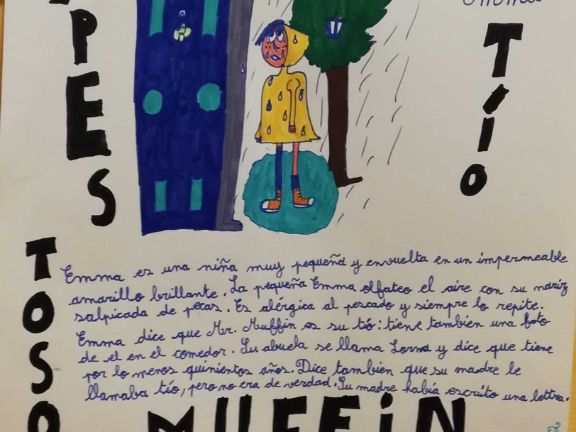 PES
TÍO
TOSO
Emma es una niña muy pequeña y envuelta en un impermeable
amarillo brillante. La pequeña Emma olfateo el aire con su nariz
salpicada de pecas. Es alérgica al pescado y siempre lo repite.
Emma dice que Mr. Muffin es su tío: tiene también una foto
de el en el comedor. Su abuela se llama Lorna y dice que tiene
por lo menos quinientos años. Dice también que su madre le
llamaba tío, pero no era de verdad. Su madre había escrito una lettra.
MUFFiN